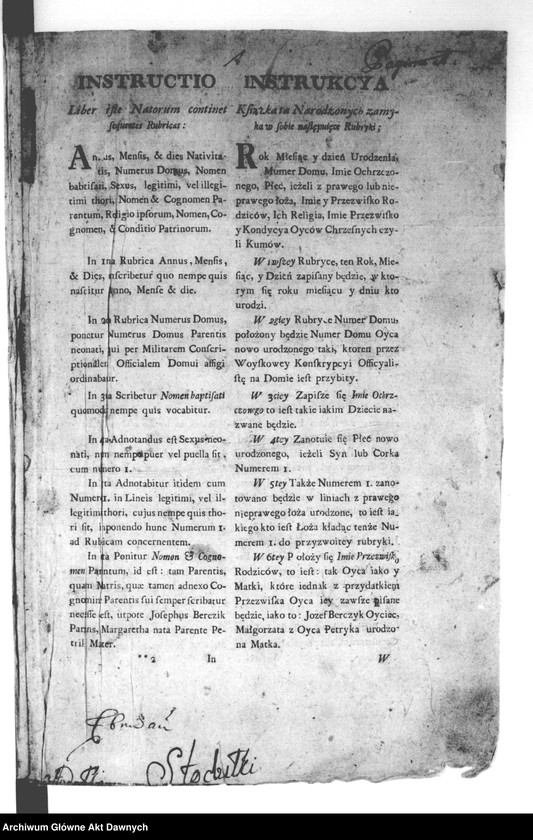 INSTRUCTIO
Liber iste Natorum continet
sequentes Rubricas:
Annus, Mensis, & dies Nativita-
tis, Numerus Domus, Nomen
babtisati, Sexus, legitimi, vel illegi-
timi thori, Nomen & Cognomen Pa-
rentum, Religio ipsorum, Nomen, Co-
gnomen, & Conditio Patrinorum.
In 1ma Rubrica Annus, Mensis,
& Dies, inscribetur quo nempe quis
nascitur Anno, Mense & die.
In 2da Rubrica Numerus Domus,
ponetur Numerus Domus Parentis
neonati, qui per Militarem Conscri-
ptionalem Officialem Domui affigi
ordinabatur.
In 3tia Scribetur Nomen baptisati
quomodo nempe quis vocabitur.
In 4ta Adnotandus est Sexus neo-
nati, num nempe puer vel puella sit,
cum numero 1.
In 5ta Adnotabitur itidem cum
Numero 1. in Lineis legitimi, vel il-
legitimi thori, cujus nempe quis tho-
ri sit, imponendo hunc Numerum 1.
ad Rubicam concernentem.
In 6ta Ponitur Nomen & Cogno-
men Parentum, id est: tam Parentis,
quam Matris, quæ tamen adnexo Co-
gnomini Parentis sui semper scribatur
necesse est, utpote Josephus Berczik
Patris, Margaretha nata Parente Pe-
tril Mater.
**2 In
INSTRUKCYA
Książka ta Narodzonych zamy-
ka w sobie następuiące Rubryki;
Rok Miesiąc y dzień Urodzenia,
Numer Domu, Imie Ochrzczo-
nego, Płeć, ieżeli z prawego lub nie-
prawego łoża, Imie y Przezwisko Ro-
dziców, Ich Religia, Imie Przezwisko
y Kondycya Oyców Chrzesnych czy-
li Kumów.
W 1wszey Rubryce, ten Rok, Mie-
siąc, y Dzień zapisany będzie, w kto-
rym się roku miesiącu y dniu kto
urodzi.
W 2giey Rubryce Numer Domu,
położony będzie Numer Domu Oyca
nowo urodzonego taki, ktoren przez
Woyskowey Konskrypcyi Officyali-
stę na Domie iest przybity.
W 3ciey Zapisze się Imie Ochrz-
czonego to iest takie iakim Dziecie na-
zwane będzie.
W 4tey Zanotuie się Płeć nowo
urodzonego, ieżeli Syn lub Corka
Numerem 1.
W 5tey Także Numerem 1. zano-
towano będzie w liniach z prawego
nieprawego łoża urodzone, to iest ia-
kiego kto iest Łoża kładąc tenże Nu-
merem 1. do przyzwoitey rubryki.
W 6tey Położy się Imie Przezwisko
Rodziców, to iest: tak Oyca iako y
Matki, które iednak z przydatkiem
Przezwiska Oyca iey zawsze pisane
będzie, iako to: Jozef Berczyk Oyciec,
Małgorzata z Oyca Petryka urodzo-
na Matka.
W
Archiwum Główne Akt Dawnych